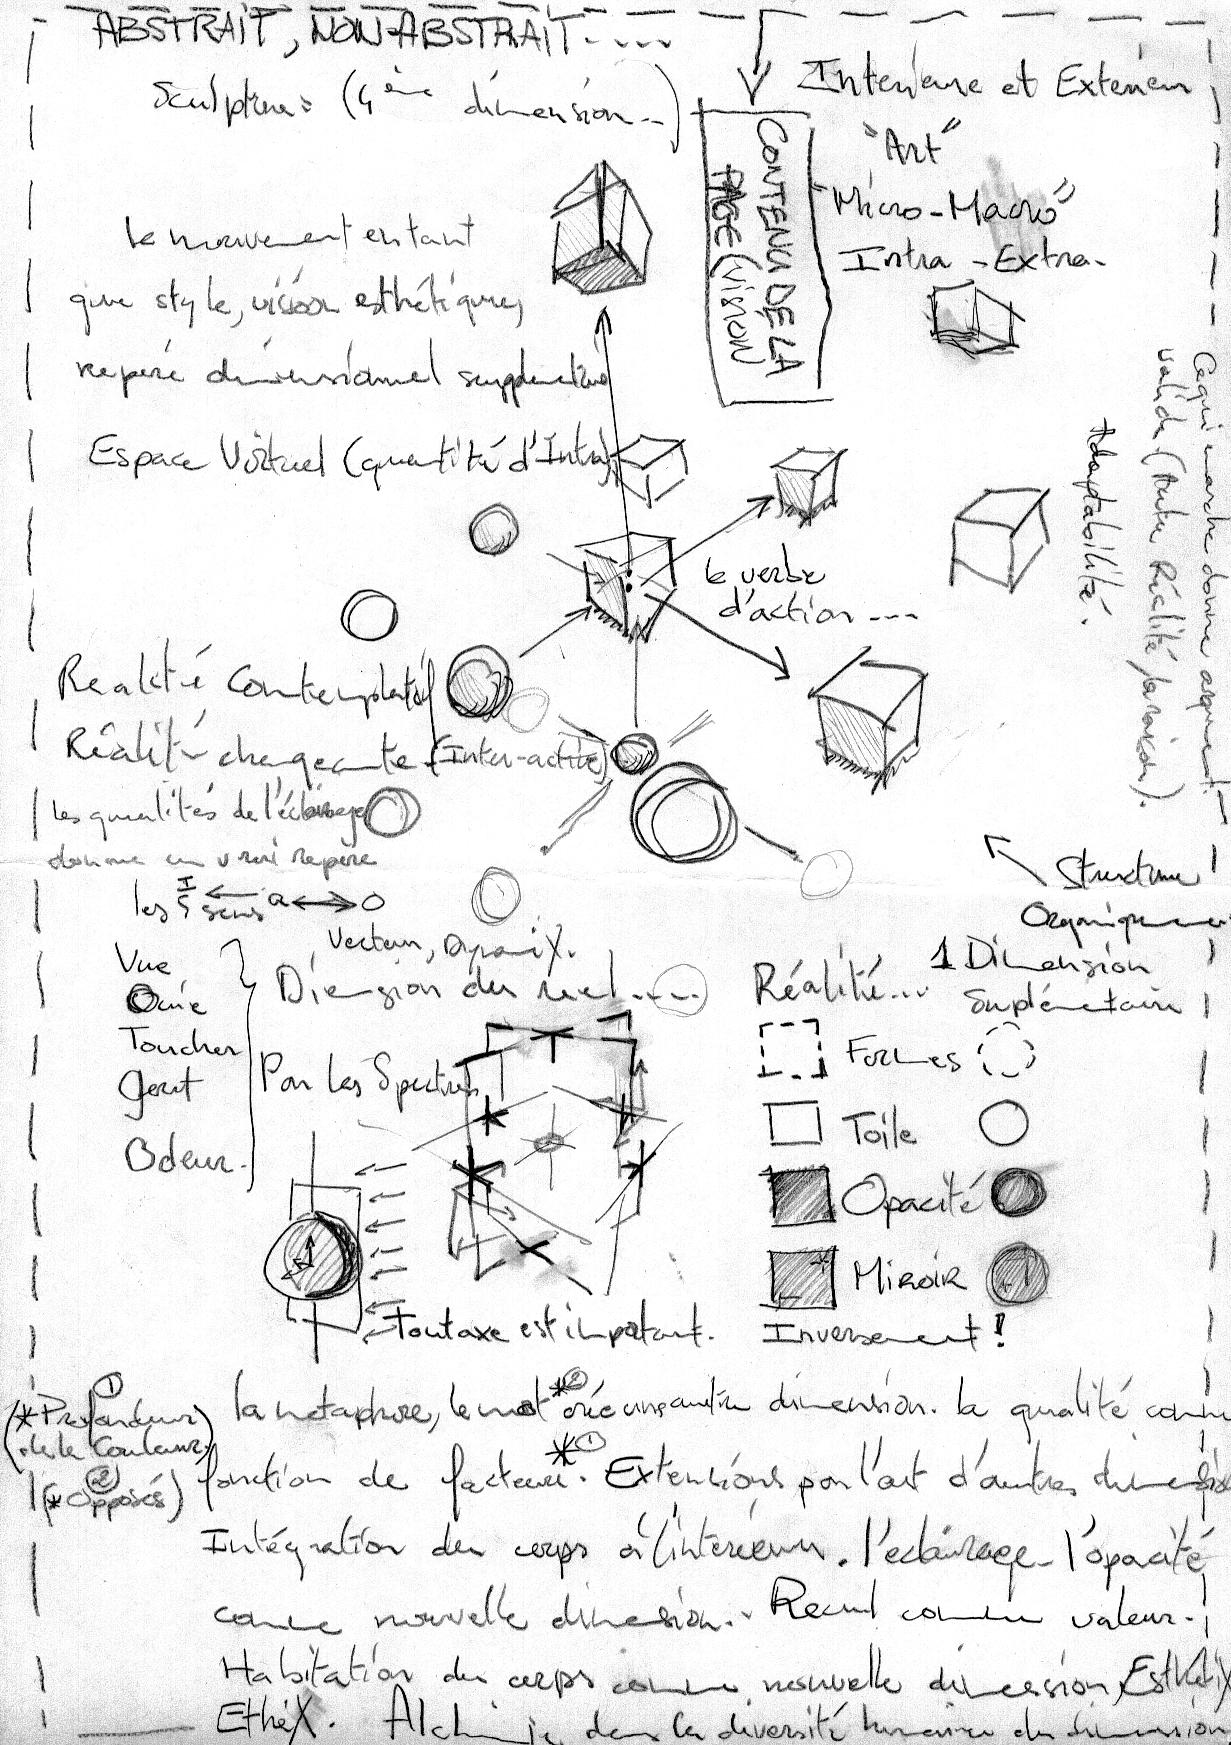 ABSTRAIT, NON-ABSTRAIT.....
Sculpture: (4ème dimension...)
Intérieure et Extérieur
"Art"
"Micro-Macro"
Intra-Extra-
CONTENU DE LA
PAGE (VISION
le mouvement en tant
que style, vision esthétique,
repère dimensionnel
Espace Virtuel (quantité d'Intra)
le verbe
d'action ....
Ce qui marche donne argument
valide (
Réalité
Adaptabilité.
Réalité Contemplatif
Réalité changeante (Inter-active)
les qualités de l'éclairage
donne un vrai repère
les 5 sens
Vecteur, DynamiX.
Structure
Organique
Vue
Ouïe
Toucher
Gout
Odeur.
Dimension du réel....
Par les Spectres
Réalité...
1 Dimension
Suplémentaire
Formes
Toile
Opacité
Miroir
Inversement!
Tout axe est important.
(*Profondeur) ①
de la Couleur)
(*Opposés) ②
la métaphore, le mot *② crée une autre dimension. la qualité comme
fonction de facteur *①. Extensions par l'art d'autres dimensions
Intégration du corps à l'intérieur. l'éclairage - l'opacité
comme nouvelle dimension.. Recul comme valeur..
Habitation du corps comme nouvelle dimension, EsthétiX
EthéX. Alchimie dans la diversité humaine du dimension